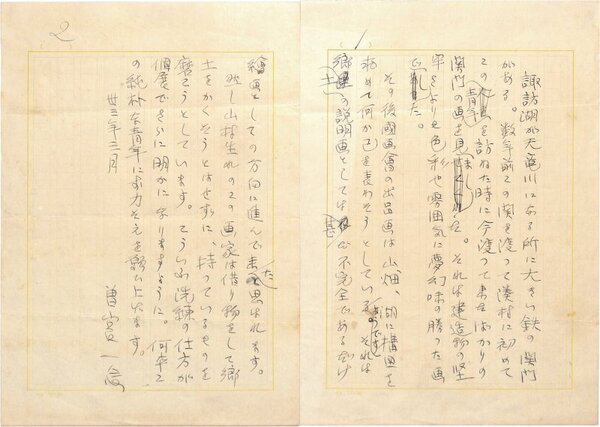 1
諏訪湖が天竜川になる所に大きい鉄の関門
がある。数年前この関を渡って湊村に初めて
この青年を訪ねた時に今渡って来たばかりの
関門の画を見た。それは建造物の堅
牢さよりも色彩や雰囲気に夢幻味の勝った画
でした。
その後國画會の出品画は山畑、湖に構図を
求めて何か己を表わそうとしているようです。それは
郷土の説明画としては甚だ不完全であるだけ
2
繪画としての方向に進んで来たと思はれます。
然し山村生れのこの画家は借り物をして郷
土をかくそうとはせずに、持っているものを
磨こうとしています。こういふ洗練の仕方が
個展でさらに明かになりますように。何卒こ
の純朴な青年にお力そえを願い上げます。
廿三年二月
曽宮一念